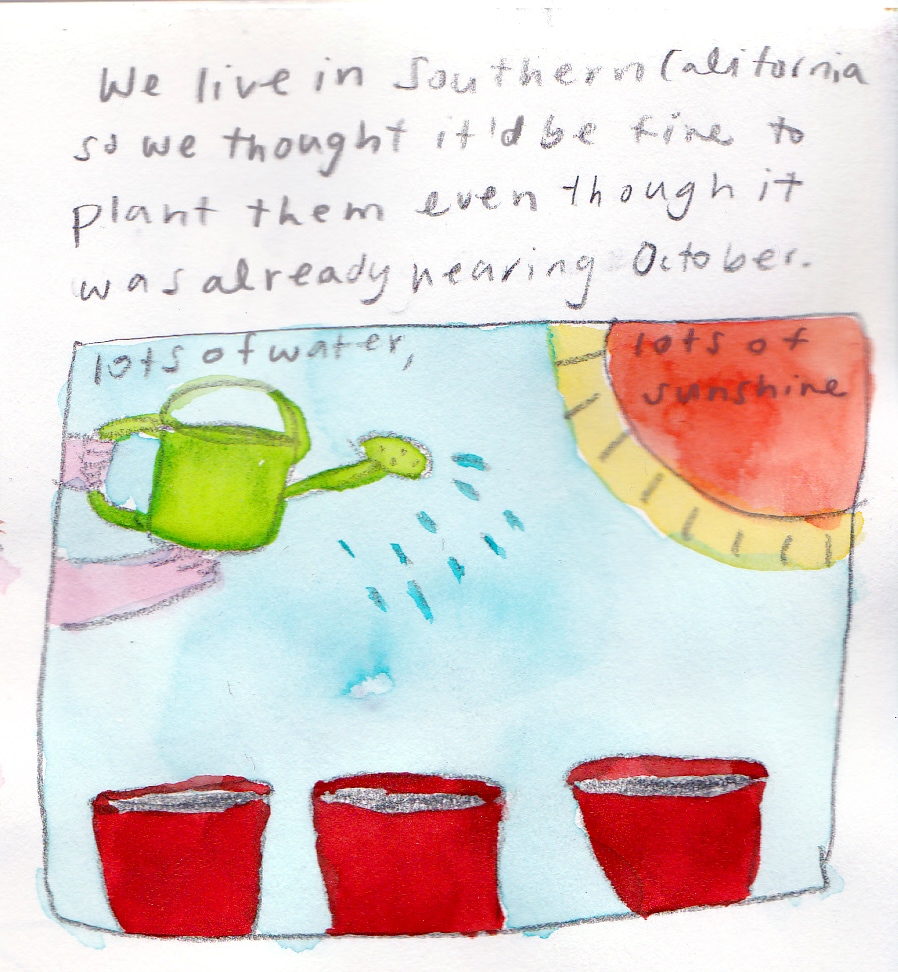 We live in Southern California
so we thought it'd be fine to
plant them even though it
was already nearing October.
lots of water,
lots of
sunshine